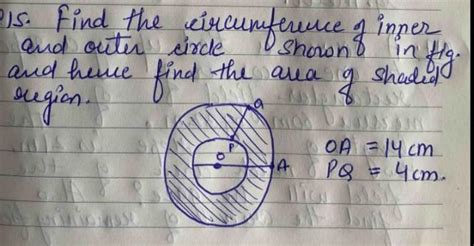 Q15. Find the circumference of inner
and outer circle shown in fig.
and hence find the area of shaded
region.
Q
P
O
A
OA = 14 cm
PQ = 4 cm.